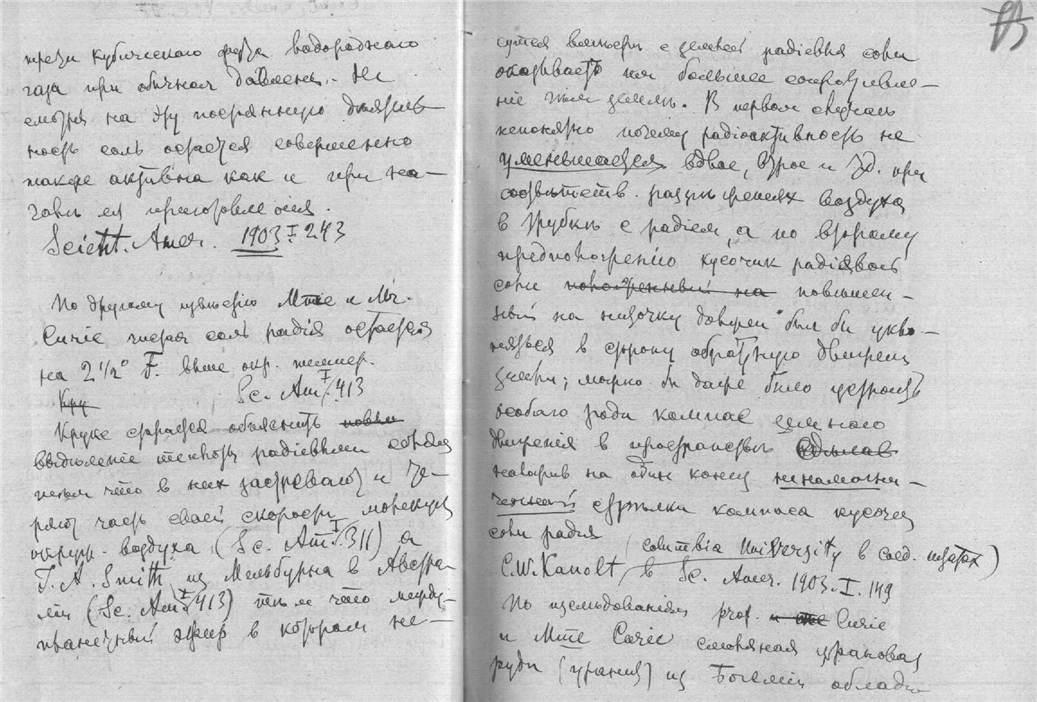 трети кубического фута водородного
газа при обычном давлен. Не
смотря на эту постоянную деятель-
ность соль остается совершенно
также активна как и при на-
чале ея приготовления.
Scient. Amer. 1903 I 243
По другому изслѣдованію Mme и Mr.
Curie чистая соль радія остается
на 2 1/2° F. выше окр. темпер.
Кру Sc. Am. I 413
Крукс старается объяснить
выдѣленіе теплоты радіевыми солями
тѣмъ что в них застревают и те-
ряют часть своей скорости молекулы
окруж. воздуха (Sc. Am. I 311) а
T. A. Smith из Мельбурна в Австра-
ліи (Sc. Am. I 413) тѣм что между-
планетный эфир в котором не-
сутся вмѣстѣ с землей радіевыя соли
оказывает им большее сопротивле-
ніе чѣм землѣ. В первом случаѣ
непонятно почему радіоактивность не
уменьшается вдвое, втрое и тд. при
соотвѣтств. разрѣженіях воздуха
в трубкѣ с радіем, а по второму
предположенію кусочик радіевой
соли повѣшен-
ный на ниточку должен был бы укло-
няться в сторону обратную движенію
земли; можно бы даже было устроить
особаго рода компас земного
движенія в пространствѣ сдѣлав
на один конец ненамагни-
ченной стрѣлки компаса кусочек
соли радія
(Columbia University в Соед. Штатах)
C. W. Kanolt, в Sc. Amer. 1903. I. 149
По изслѣдованіям prof. Curie
и Mme Curie смоляная урановая
руда (уранит) из Богеміи облада-